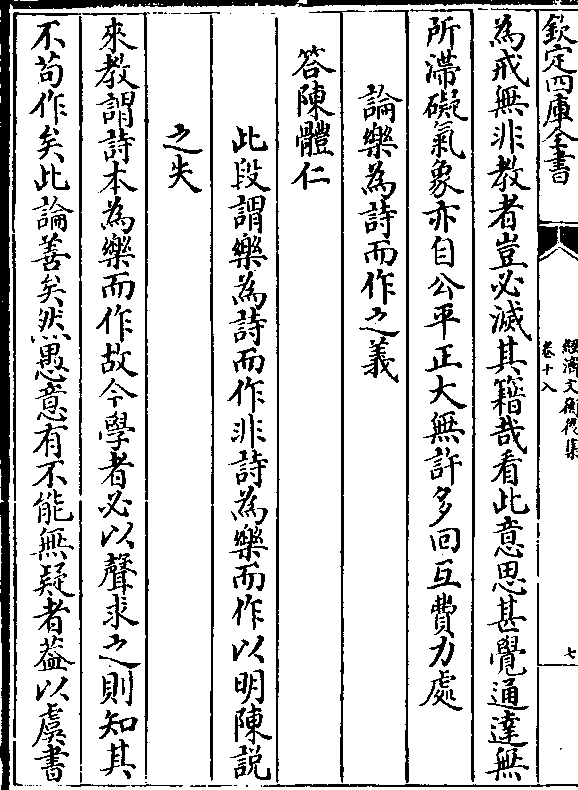 欽定四庫全書
經濟文衡後集
卷十八
七
為戒無非教者豈必滅其籍哉看此意思甚覺通達無
所滯礙氣象亦自公平正大無許多回互費力處
論樂為詩而作之義
答陳體仁
此段謂樂為詩而作非詩為樂而作以明陳説
之失
來教謂詩本為樂而作故今學者必以聲求之則知其
不苟作矣此論善矣然愚意有不能無疑者葢以虞書